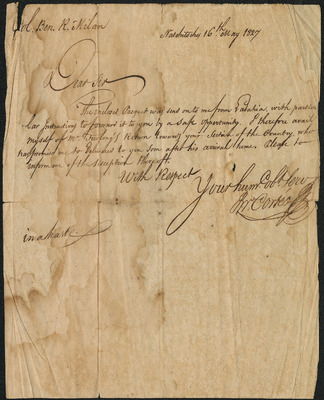 Col. Ben. R. Milam
Natchitochy 16th May 1827
Dear Sir
The inclosed Pacquet was sent onto me from Badahia, with particu
lar Intruding to forward it to you by a safe opportunity. I therefore avail
myself of Mr Return towards your Section of the Country, who
has promised me to deliver it to you soon after his arrival home. Please to
inform me of the reception thereof.
With Respect
Your humb Obt Serv
in a haste